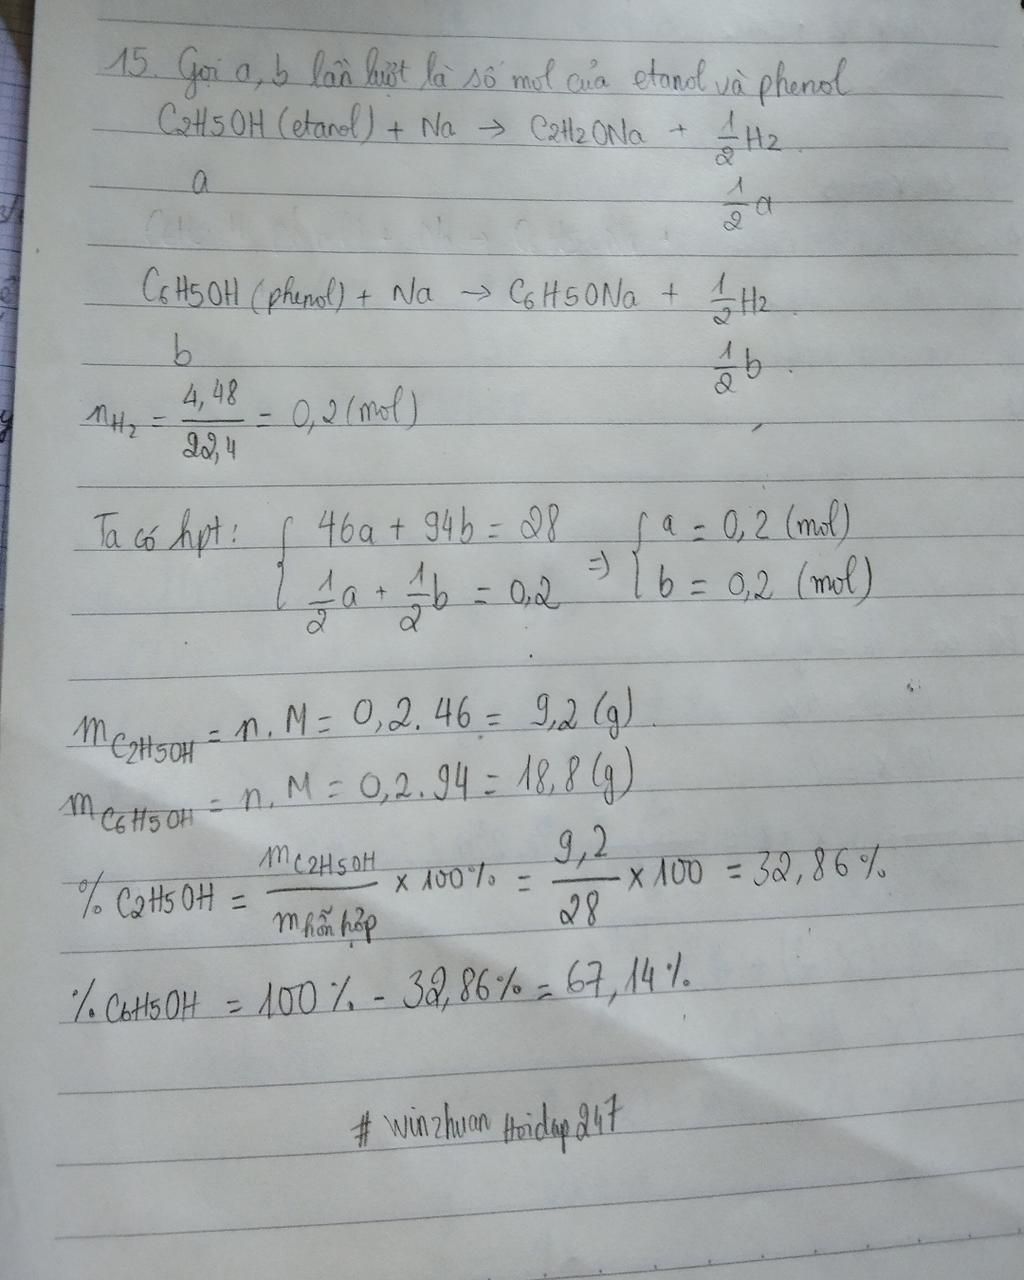 15. Gọi a, b lần lượt là số mol của etanol và phenol
C2H5OH (etanol) + Na → C2H2ONa + 1/2 H2
a 1/2 a
C6H5OH (phenol) + Na → C6H5ONa + 1/2 H2
b 1/2 b
nH2 = 4,48/22,4 = 0,2 (mol)
Ta có hpt: { 46a + 94b = 28 ⇒ { a = 0,2 (mol)
1/2 a + 1/2 b = 0,2 b = 0,2 (mol)
mC2H5OH = n.M = 0,2.46 = 9,2 (g)
mC6H5OH = n.M = 0,2.94 = 18,8 (g)
% C2H5OH = mC2H5OH/mhỗn hợp × 100% = 9,2/28 × 100 = 32,86%
% C6H5OH = 100% - 32,86% = 67,14%
# winzhuan Hoidap247